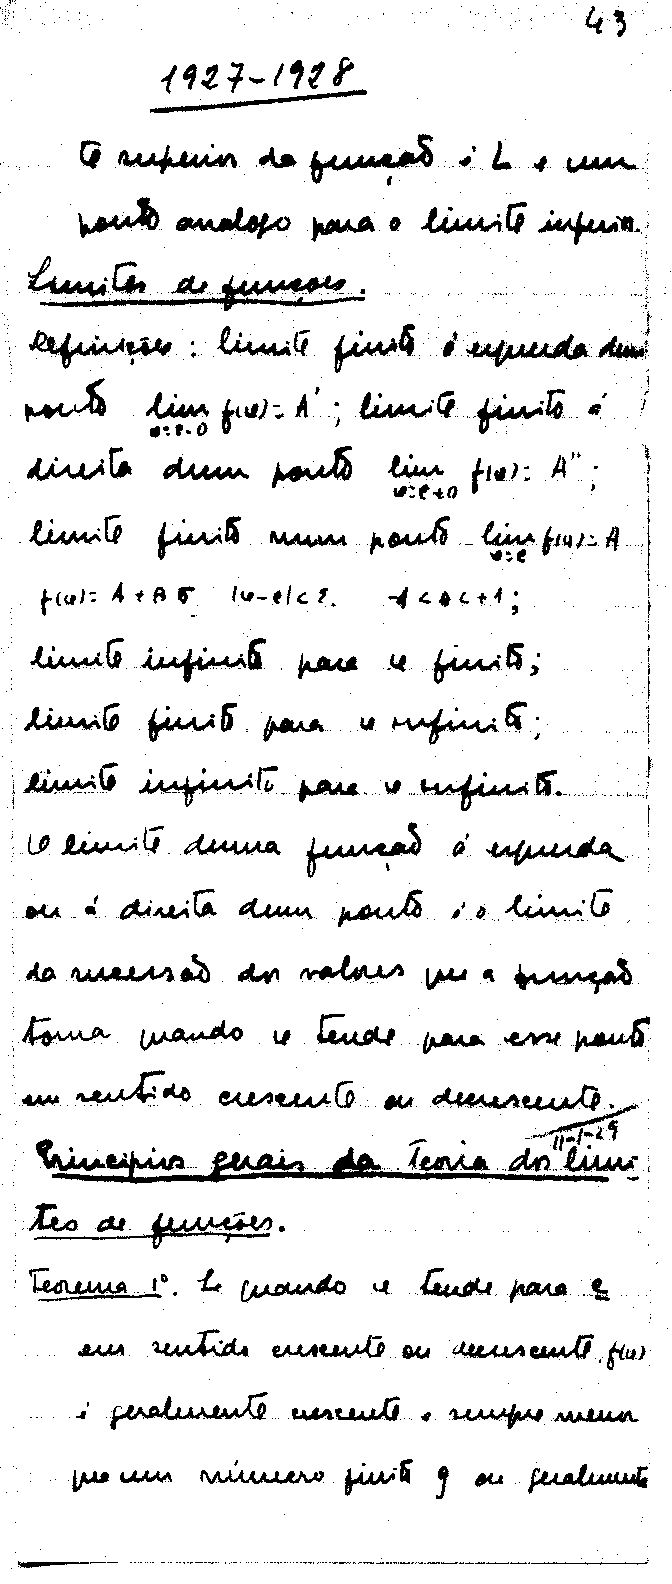 43
1927-1928
te superior da função é L e um
ponto analogo para o limite inferior.
Limites de funções.
Definições: limite finito á esquerda dum
ponto lim f(u)= A' ; limite finito á
u=e-0
direita dum ponto lim f(u)= A'' ;
u=e+0
limite finito num ponto lim f(u)= A
u=e
f(u)= A + θ σ |u-e|<ε. -1<θ<+1;
limite infinito para u finito;
limite finito para u infinito;
limite infinito para u infinito.
O limite duma função á esquerda
ou á direita dum ponto é o limite
da sucessão dos valores que a função
toma quando u tende para esse ponto
em sentido crescente ou decrescente.
11-1-29
Principios gerais da Teoria dos limi-
tes de funções.
Teorema 1º. Se quando u tende para e
em sentido crescente ou decrescente, f(u)
é geralmente crescente e sempre menor
que um número finito g ou geralmente